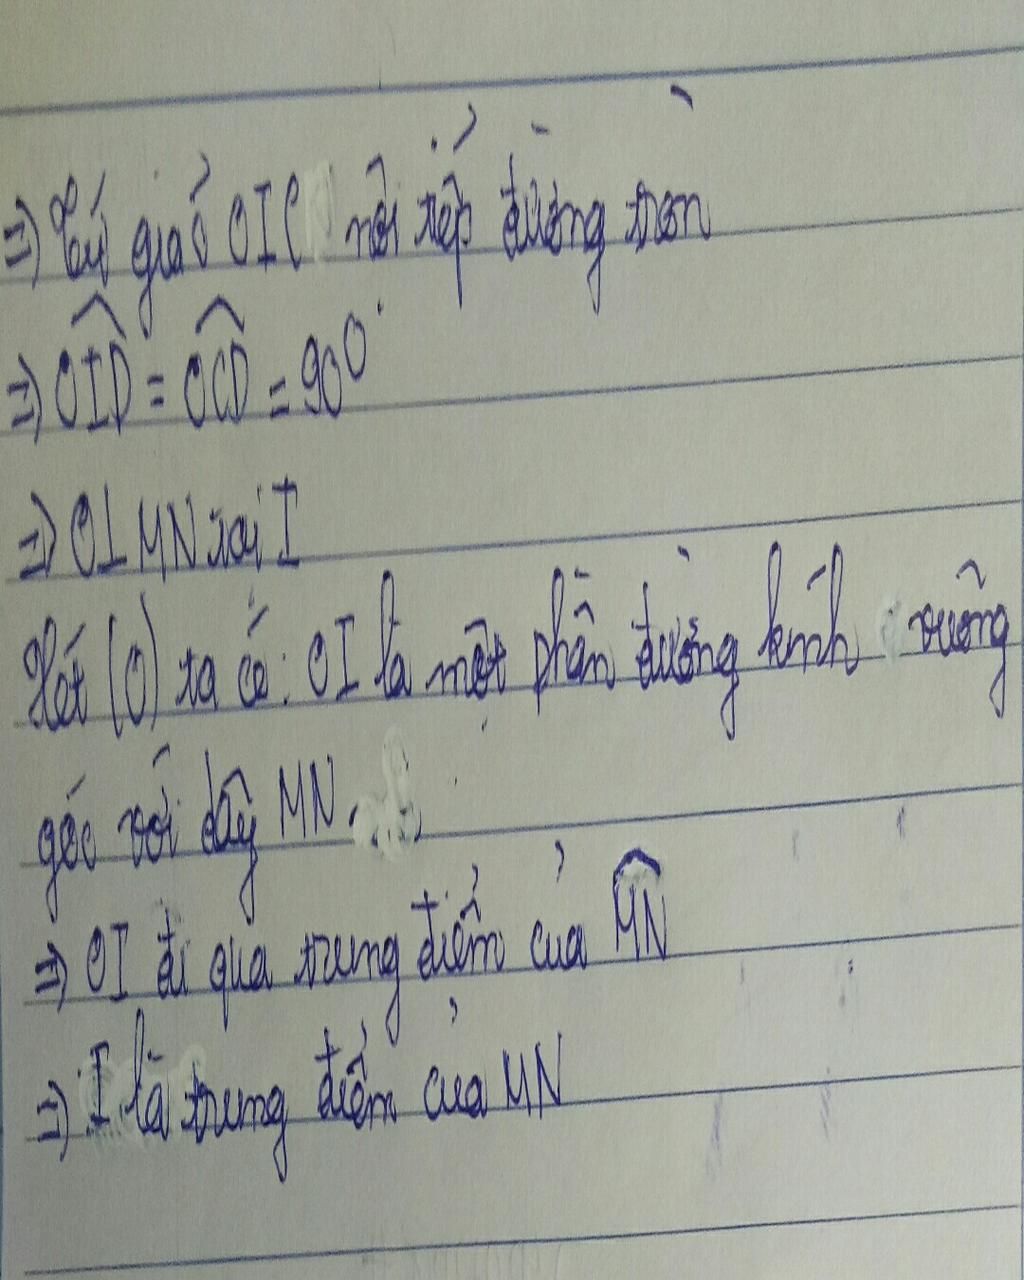 => Tứ giác OIC nội tiếp đường tròn
=> OID = OCD = 90°
=> OI⊥MN tại I
Xét (O) ta có: OI là một phần đường kính vuông
góc với dây MN.
=> OI đi qua trung điểm của MN
=> I là trung điểm của MN